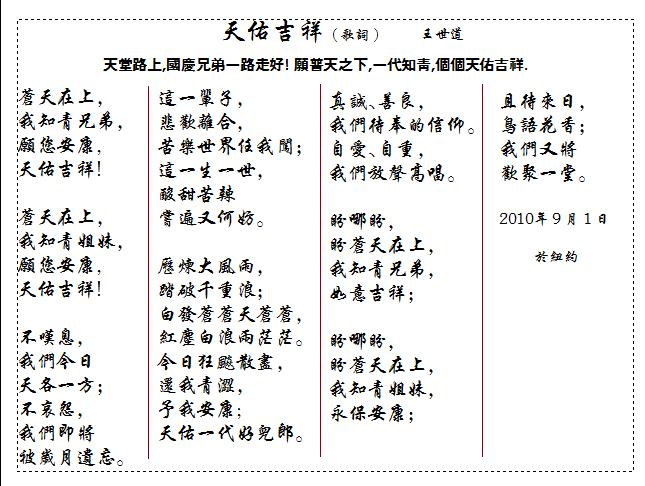 天佑吉祥（歌詞） 王世道
天堂路上,國慶兄弟一路走好! 願普天之下,一代知青,個個天佑吉祥.
蒼天在上，
我知青兄弟，
願您安康，
天佑吉祥！
蒼天在上，
我知青姐妹，
願您安康，
天佑吉祥！
不嘆息，
我們今日
天各一方；
不哀怨，
我們即將
被歲月遺忘。
這一輩子，
悲歡離合，
苦樂世界任我闖；
這一生一世，
酸甜苦辣
嘗遍又何妨。
歷煉大風雨，
踏破千重浪；
白發蒼蒼天蒼蒼，
紅塵白浪兩茫茫。
今日狂飈散盡，
還我青澀，
予我安康；
天佑一代好兒郎。
真誠、善良，
我們待奉的信仰。
自愛、自重，
我們放聲高唱。
盼哪盼，
盼蒼天在上，
我知青兄弟，
如意吉祥；
盼哪盼，
盼蒼天在上，
我知青姐妹，
永保安康；
且待來日，
鳥語花香；
我們又將
歡聚一堂。
2010年9月1日
於紐約